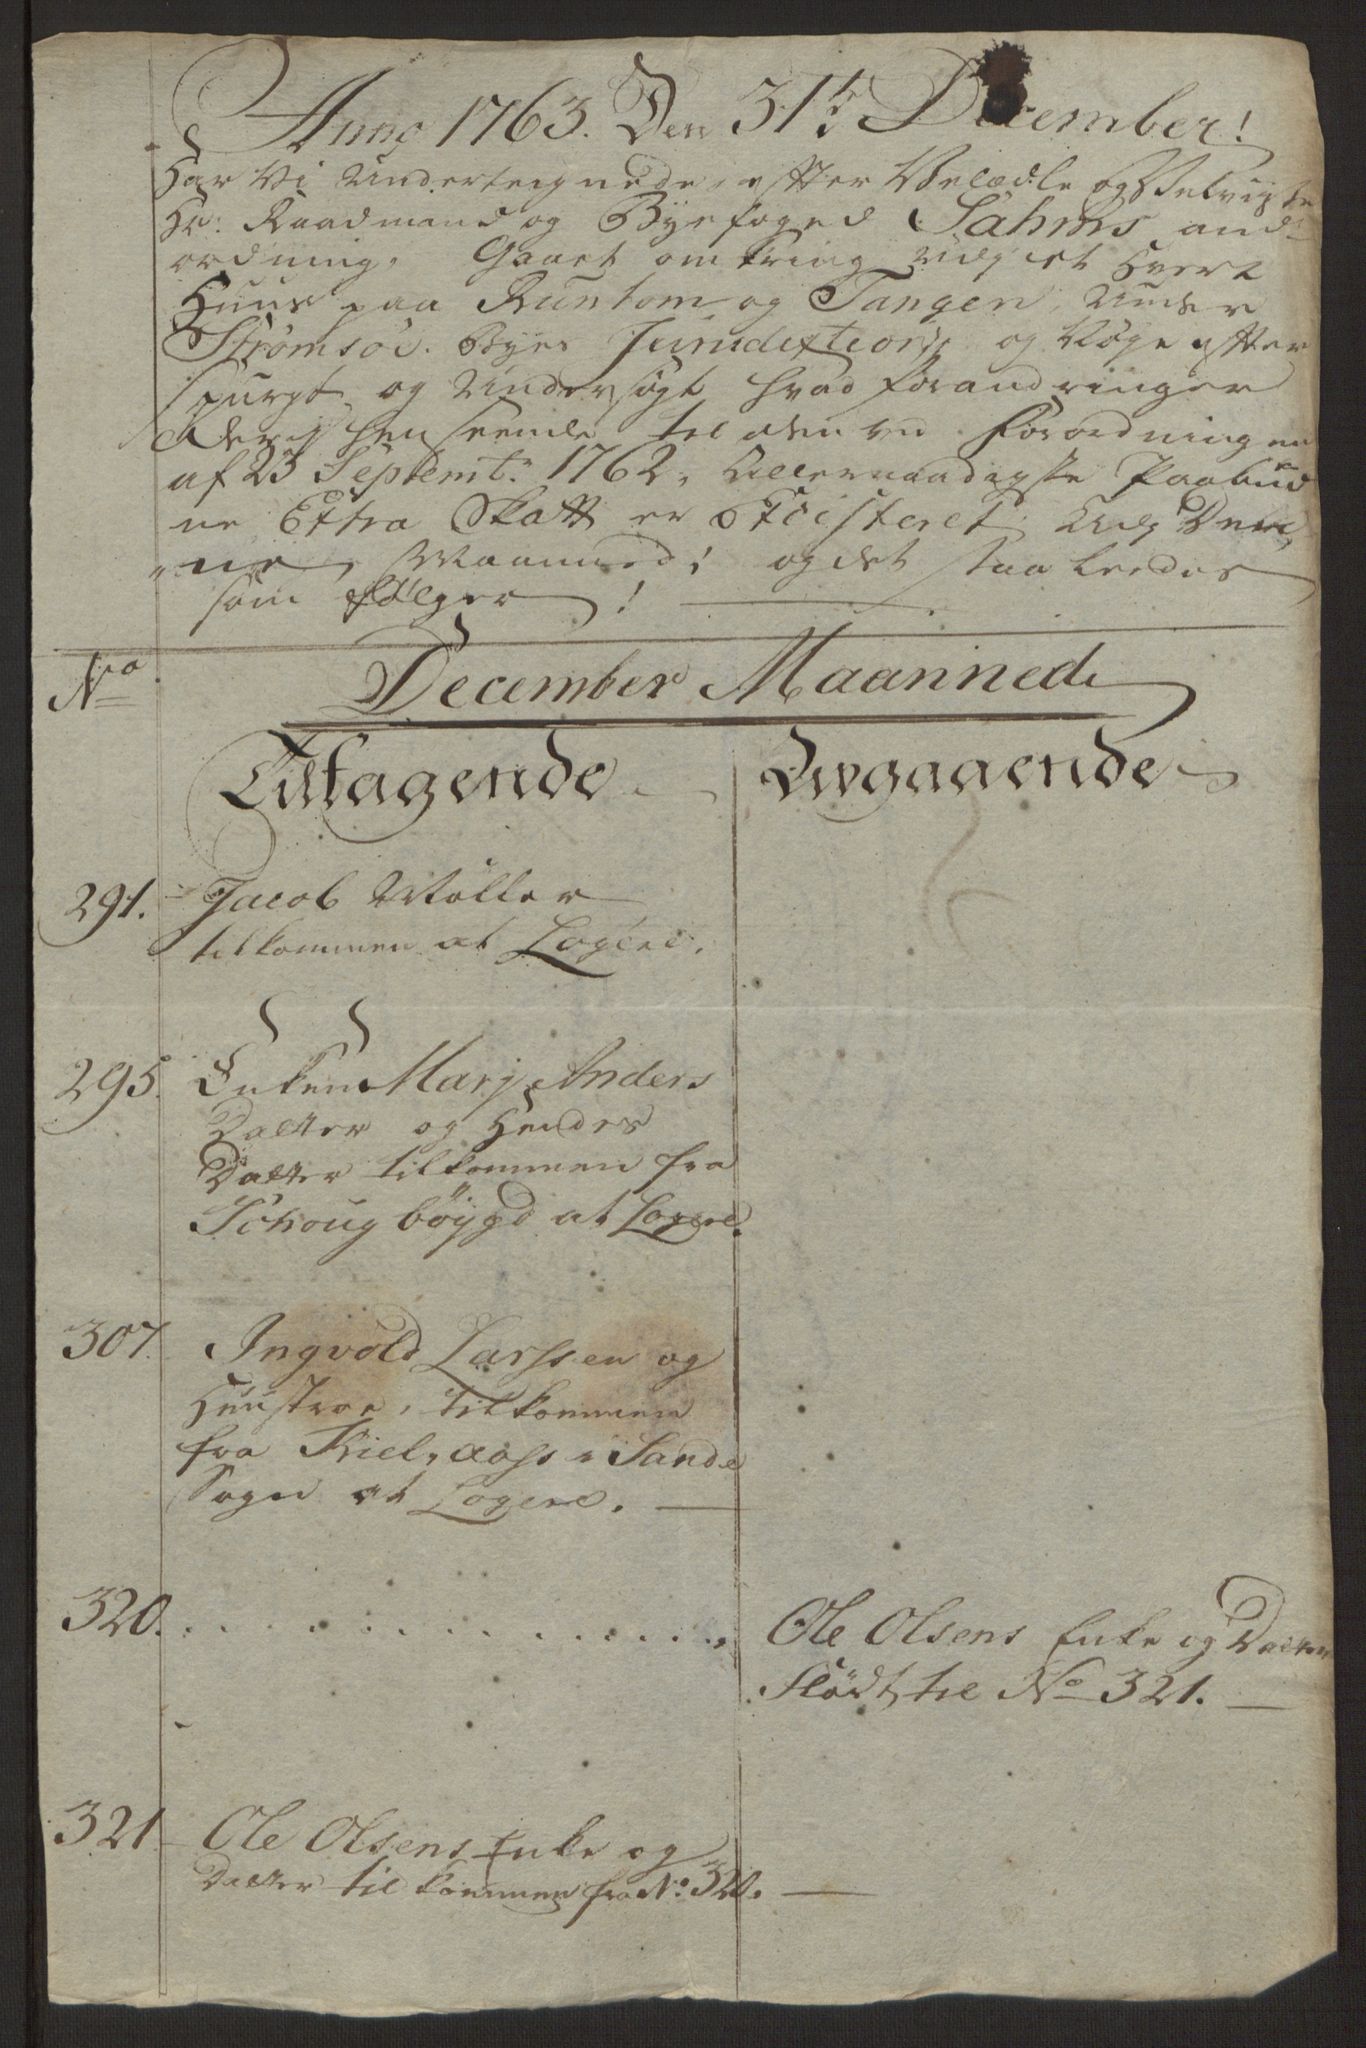 Anno 1763. Den 31te December!
Har Vi Underteignede, efter Velædle og Velviise
Hr: Raadmand og Byefoged Sahms and-
ordning, Gaaet omkring udj et Hvert
Huus paa Runtom og Tangen, Under
Strömsöe Byes Jurisdixtion, og Nöye efter
spurgt og Undersögt hvad forandringer
Derj henseende til den ved Forordningen
af 23 Septembr: 1762, Allernaadigste Paabud
ne Extra Skatt er Existeret udj Den
ne Maanned! og det saaleedes
som fölger!
No
December Maanned
Tiltagende
Avgaaende
291. Jacob Möller
tilkommen at Logere.
295. Enken Marj Anders
Datter og Hendes
Datter tilkommen fra
Schougböygd at Logere.
307. Ingvold Larssen og
Huustroe, tilkommen
fra Kiel, aass i Sande
Sogn at Logere.
320. . . . . . . . . . . . . . . Ole Olsens Enke og Datter
Flödt til No 321.
321 Ole Olsens Enke og
Datter tilkommen fra No: 320.